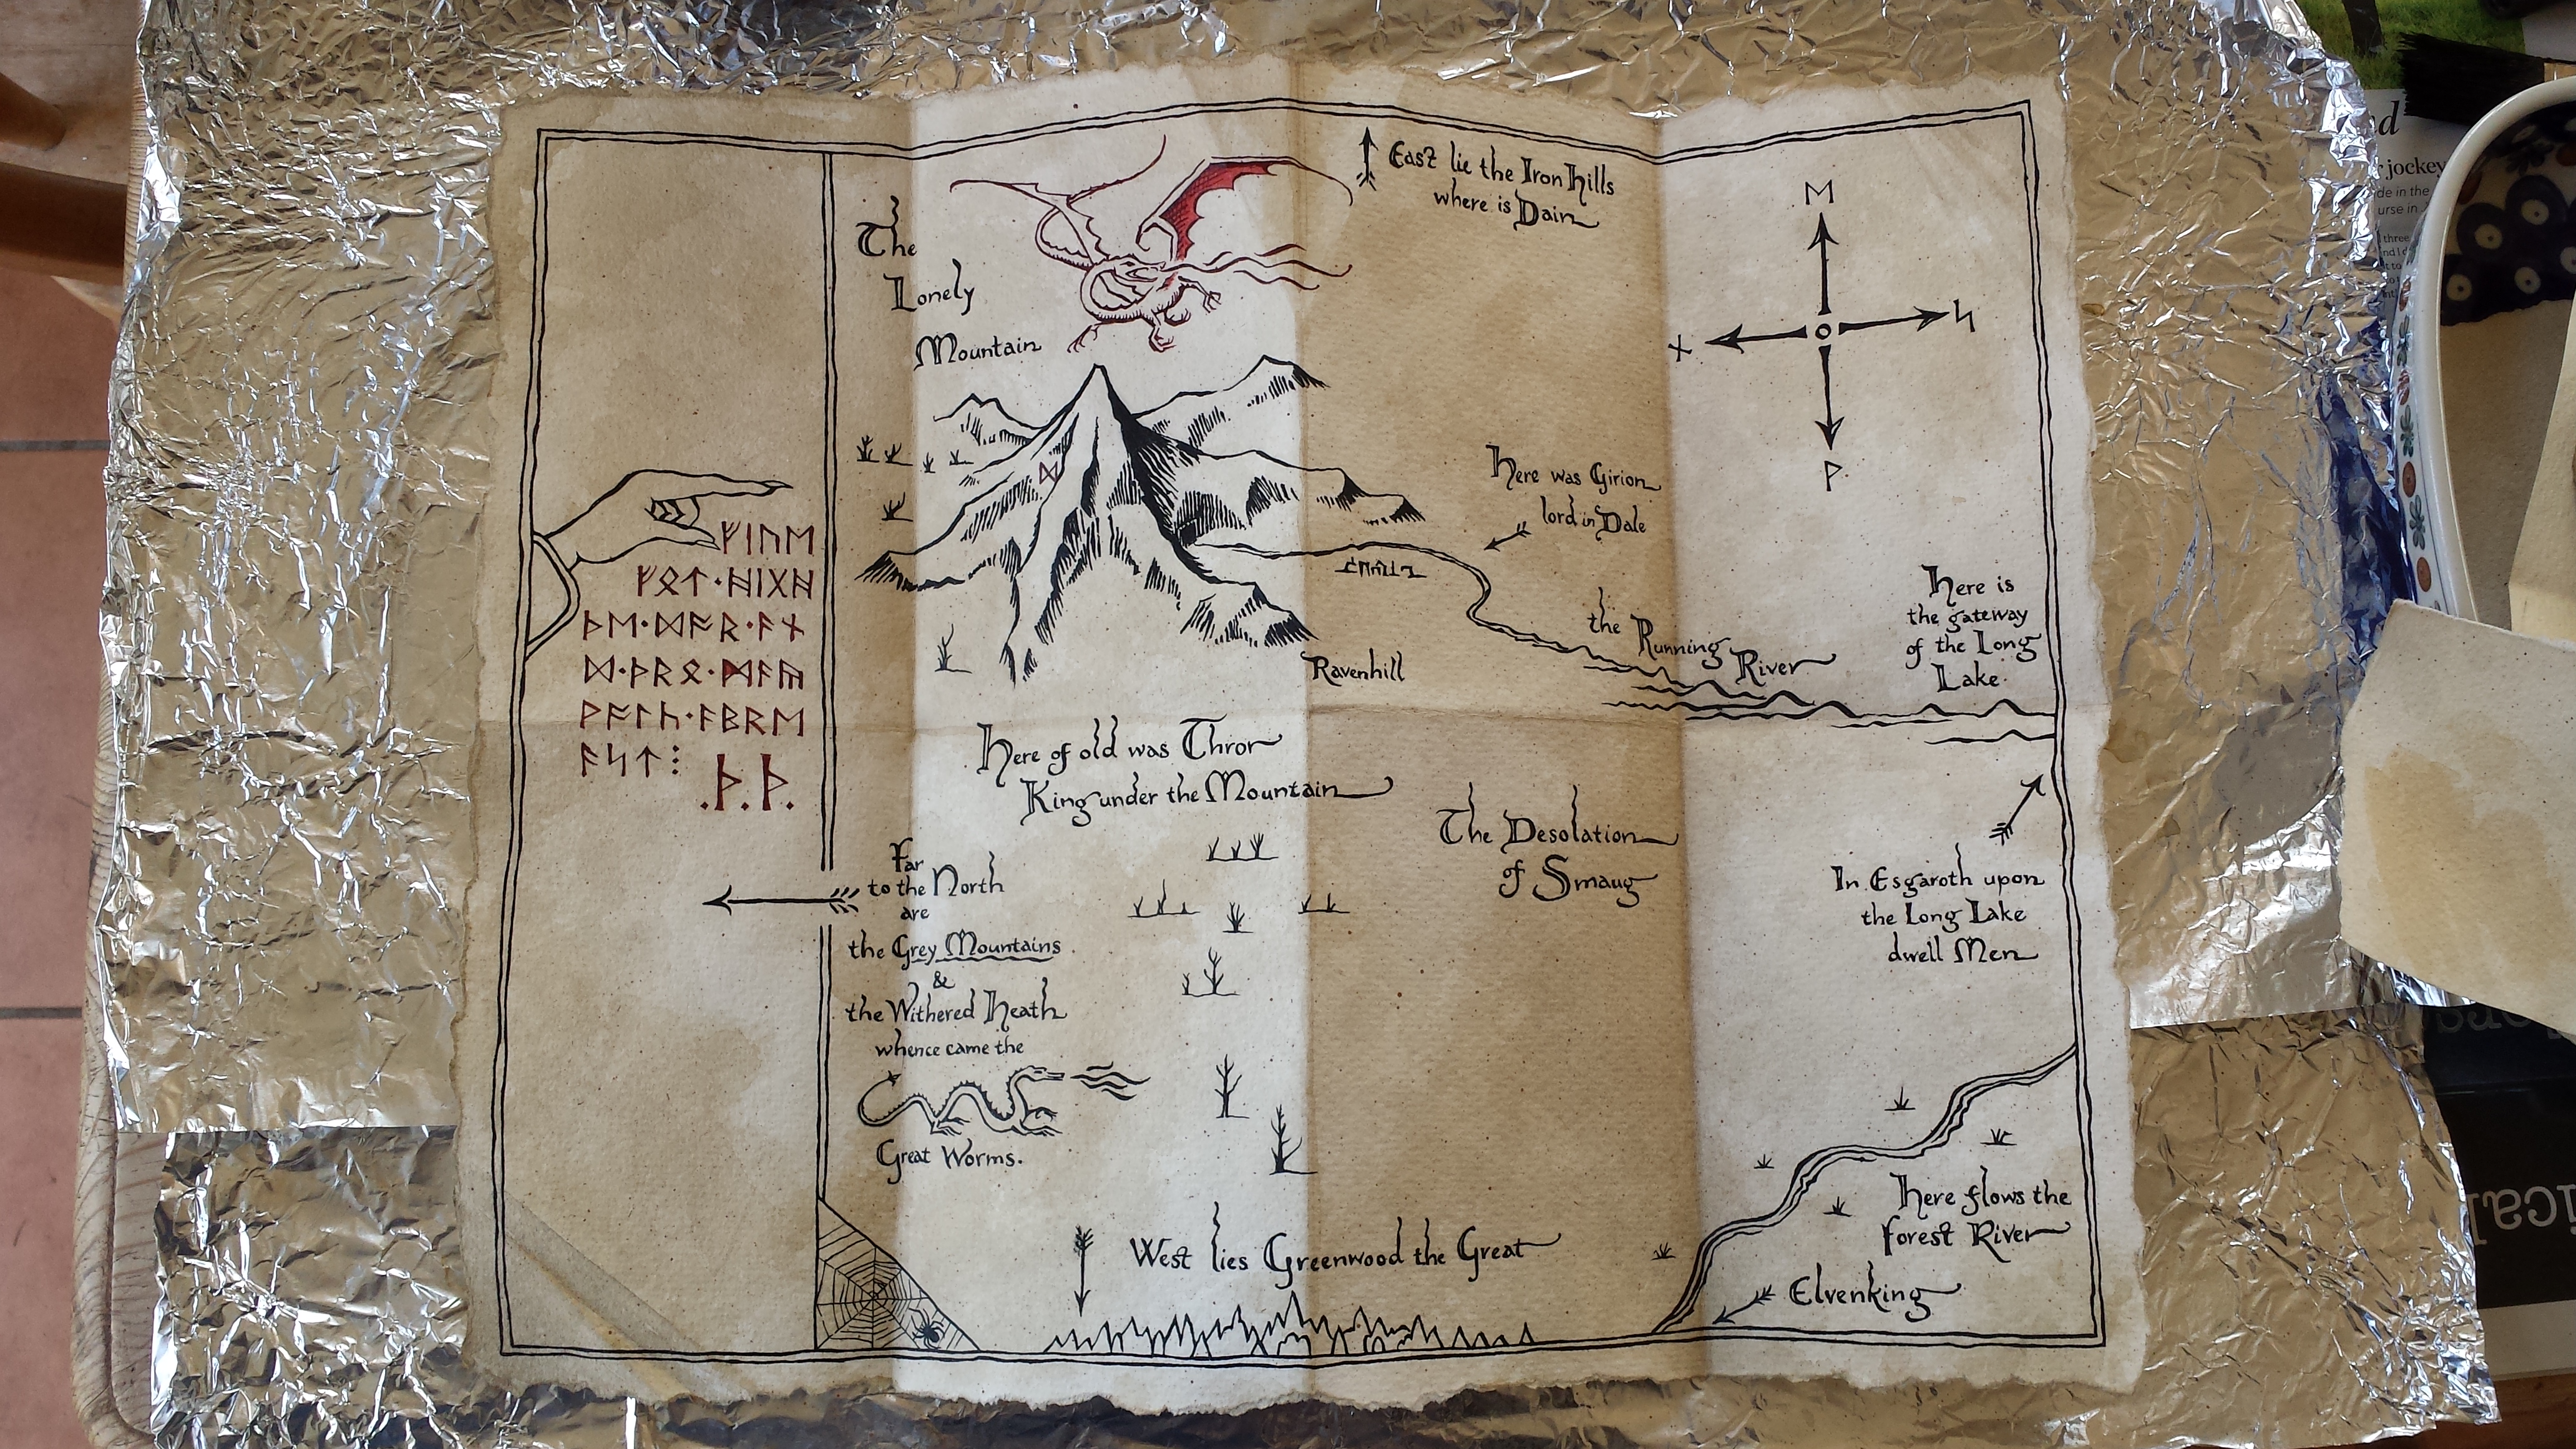 ᚠᛁᚢᛖ
ᚠᛟᛏ·ᚻᛁᚷᚻ
ᚦᛖ·ᛞᚩᚱ·ᚪᚾ
ᛞ·ᚦᚱᛟ·ᛗᚪᚣ
ᚹᚪᛚᚳ·ᚪᛒᚱᛖ
ᚪᛋᛏ⁝
.ᚦ.ᚦ.
The
Lonely
Mountain
ᛞ
East lie the Iron Hills
where is Dain
ᛖ
ᚾ
ᛋ
ᚹ
Here was Girion
lord in Dale
the Running
River
Here is
the gateway
of the Long
Lake.
Ravenhill
Here of old was Thror
King under the Mountain
The Desolation
of Smaug
Far
to the North
are
the Grey Mountains
&
the Withered Heath
whence came the
Great Worms.
In Esgaroth upon
the Long Lake
dwell Men
West lies Greenwood the Great
Here flows the
Forest River
Elvenking
jockey
in the